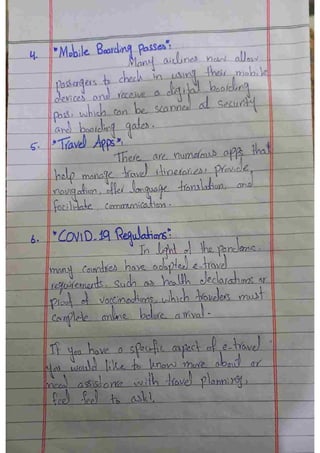 4. "Mobile Boarding Passes":
Many airlines now allow
passengers to check in using their mobile
devices and receive a digital boarding
pass which can be scanned at security
and boarding gates.
5. "Travel Apps":
There are numerous apps that
help manage travel itineraries, provide
navigation, offer language translation, and
facilitate communication.
6. "COVID-19 Regulations":
In light of the pandemic,
many countries have adopted e-travel
requirements, such as health declarations or
proof of vaccinations, which travelers must
complete online before arrival.
If you have a specific aspect of e-travel
you would like to know more about or
need assistance with travel planning,
feel feel to ask!.